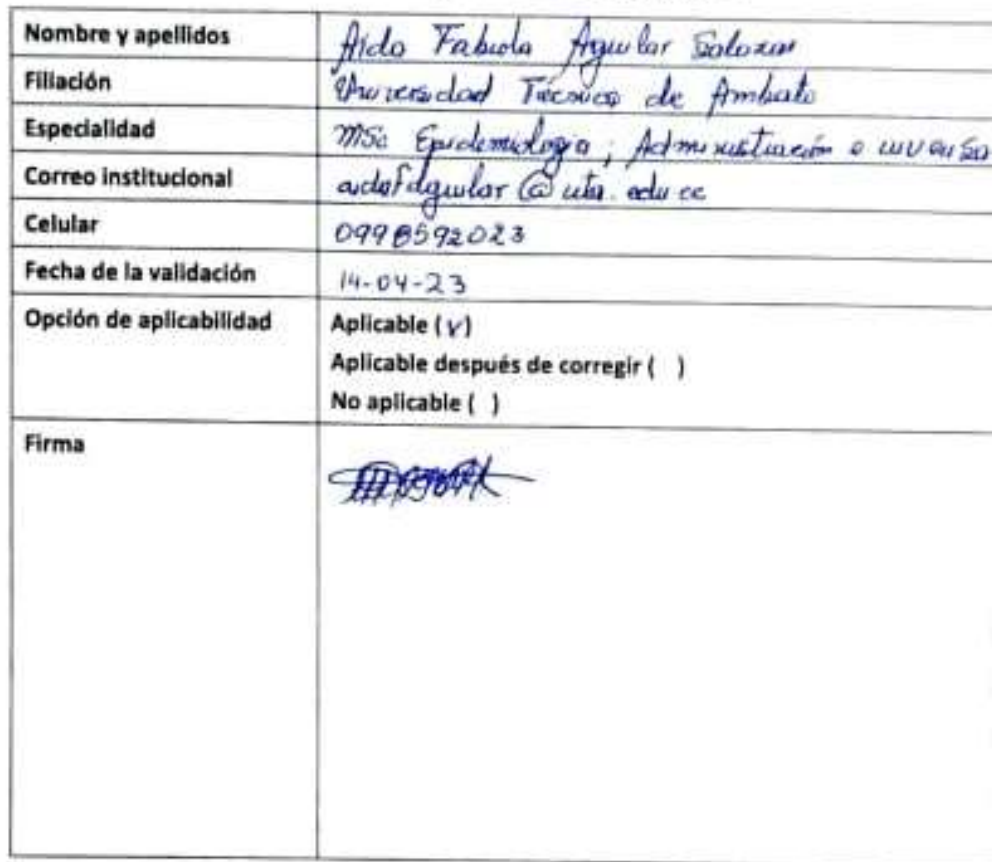 Nombre y apellidos Aida Fabiola Aguilar Salazar
Filiación Universidad Técnica de Ambato
Especialidad MSc Epidemiología; Administración e
Correo institucional aidafdguilar@uta.edu.ec
Celular 0998592023
Fecha de la validación 14-04-23
Opción de aplicabilidad Aplicable (v)
Aplicable después de corregir ( )
No aplicable ( )
Firma